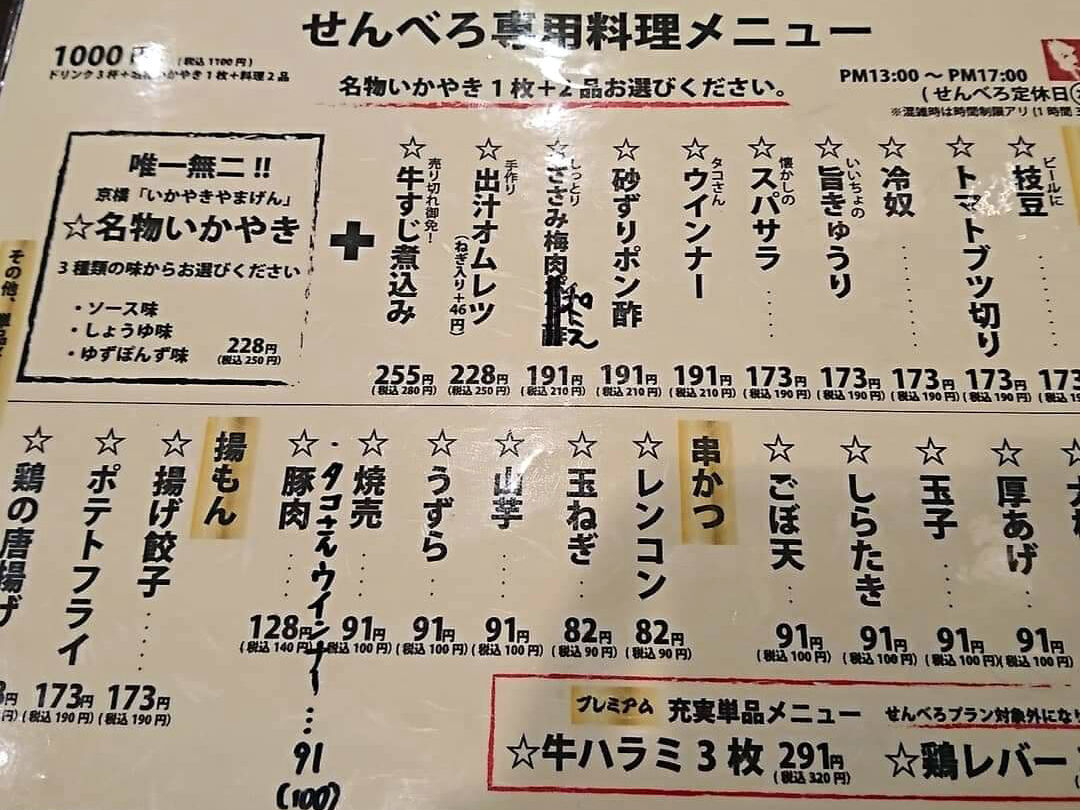 せんべろ専用料理メニュー
1000円 (税込 1100円)
ドリンク3杯+名物いかやき1枚+料理2品
名物いかやき1枚+2品お選びください。
PM13:00 ~ PM17:00
(せんべろ定休日
※混雑時は時間制限アリ(1時間
唯一無二!!
京橋「いかやきやまげん」
☆名物いかやき
3種類の味からお選びください
・ソース味
・しょうゆ味
・ゆずぽんず味
228円
(税込 250円)
+
☆ビールに 枝豆…… 173
(税込 19
☆トマトブツ切り 173円
(税込 190円)
☆冷奴…… 173円
(税込 190円)
☆いいちょの 旨きゅうり 173円
(税込 190円)
☆懐かしの スパサラ…… 173円
(税込 190円)
☆タコさん ウインナー 191円
(税込 210円)
☆砂ずりポン酢 191円
(税込 210円)
☆しっとり ささみ梅肉 191円
(税込 210円)
☆手作り 出汁オムレツ
(ねぎ入り+46円)
228円
(税込 250円)
☆売り切れ御免! 牛すじ煮込み 255円
(税込 280円)
その他、
☆厚あげ…… 91円
(税込 100円)
☆玉子…… 91円
(税込 100円)
☆しらたき 91円
(税込 100円)
☆ごぼ天…… 91円
(税込 100円)
串かつ
☆レンコン 82円
(税込 90円)
☆玉ねぎ…… 82円
(税込 90円)
☆山芋…… 91円
(税込 100円)
☆うずら…… 91円
(税込 100円)
☆焼売…… 91円
(税込 100円)
・タコさんウインナー…91
(100)
☆豚肉…… 128円
(税込 140円)
揚もん
☆揚げ餃子…… 173円
(税込 190円)
☆ポテトフライ 173円
(税込 190円)
☆鶏の唐揚げ
プレミアム 充実単品メニュー
せんべろプラン対象外にな
☆牛ハラミ3枚 291円
(税込 320円)
☆鶏レバー